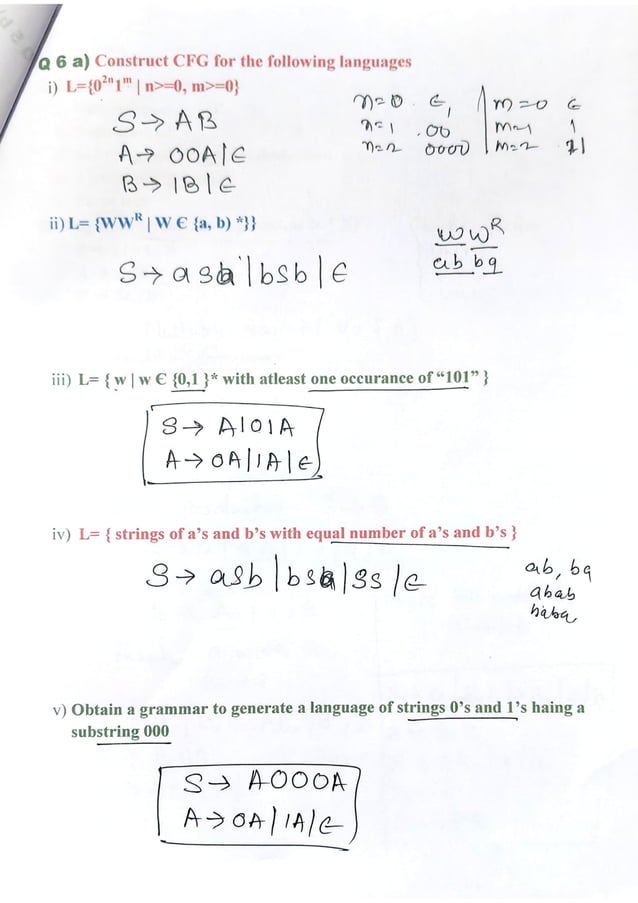 Q 6 a) Construct CFG for the following languages
i) L={0²ⁿ1ᵐ | n>=0, m>=0}
n=0 ϵ, | m=0 ϵ
n=1 .00 | m=1 1
n=2 0000 | m=2 11
S→ AB
A→ 00A|ϵ
B→ 1B|ϵ
ii) L= {WWᴿ | W Є {a, b) *}}
w wᴿ
ab ba
S→ asa|bsb|ϵ
iii) L= { w | w Є {0,1 }* with atleast one occurance of “101” }
S→ A101A
A→ 0A|1A|ϵ
iv) L= { strings of a’s and b’s with equal number of a’s and b’s }
S→ asb|bsa|ss|ϵ
ab, ba
abab
baba
v) Obtain a grammar to generate a language of strings 0’s and 1’s haing a
substring 000
S→ A000A
A→ 0A|1A|ϵ